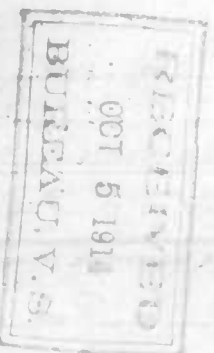 RECEIVED
OCT 5 191
BUREAU, V. S.